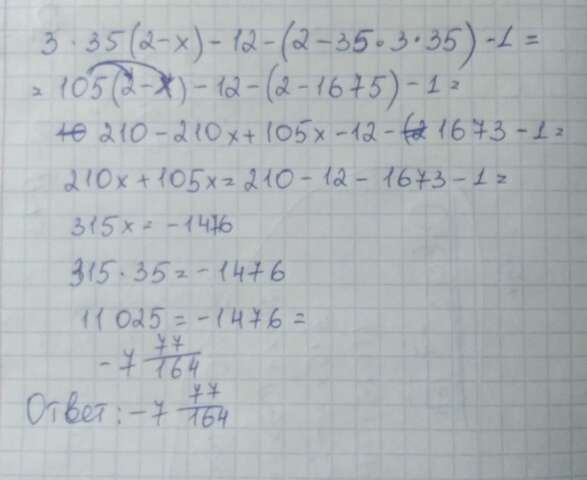 3 · 35(2-x) - 12 - (2 - 35 · 3 · 35) - 1 =
= 105(2-x) - 12 - (2 - 1675) - 1 =
210 - 210x + 105x - 12 - 1673 - 1 =
210x + 105x = 210 - 12 - 1673 - 1 =
315x = -1476
315 · 35 = -1476
11 025 = -1476 =
-7 77/164
Ответ: -7 77/164